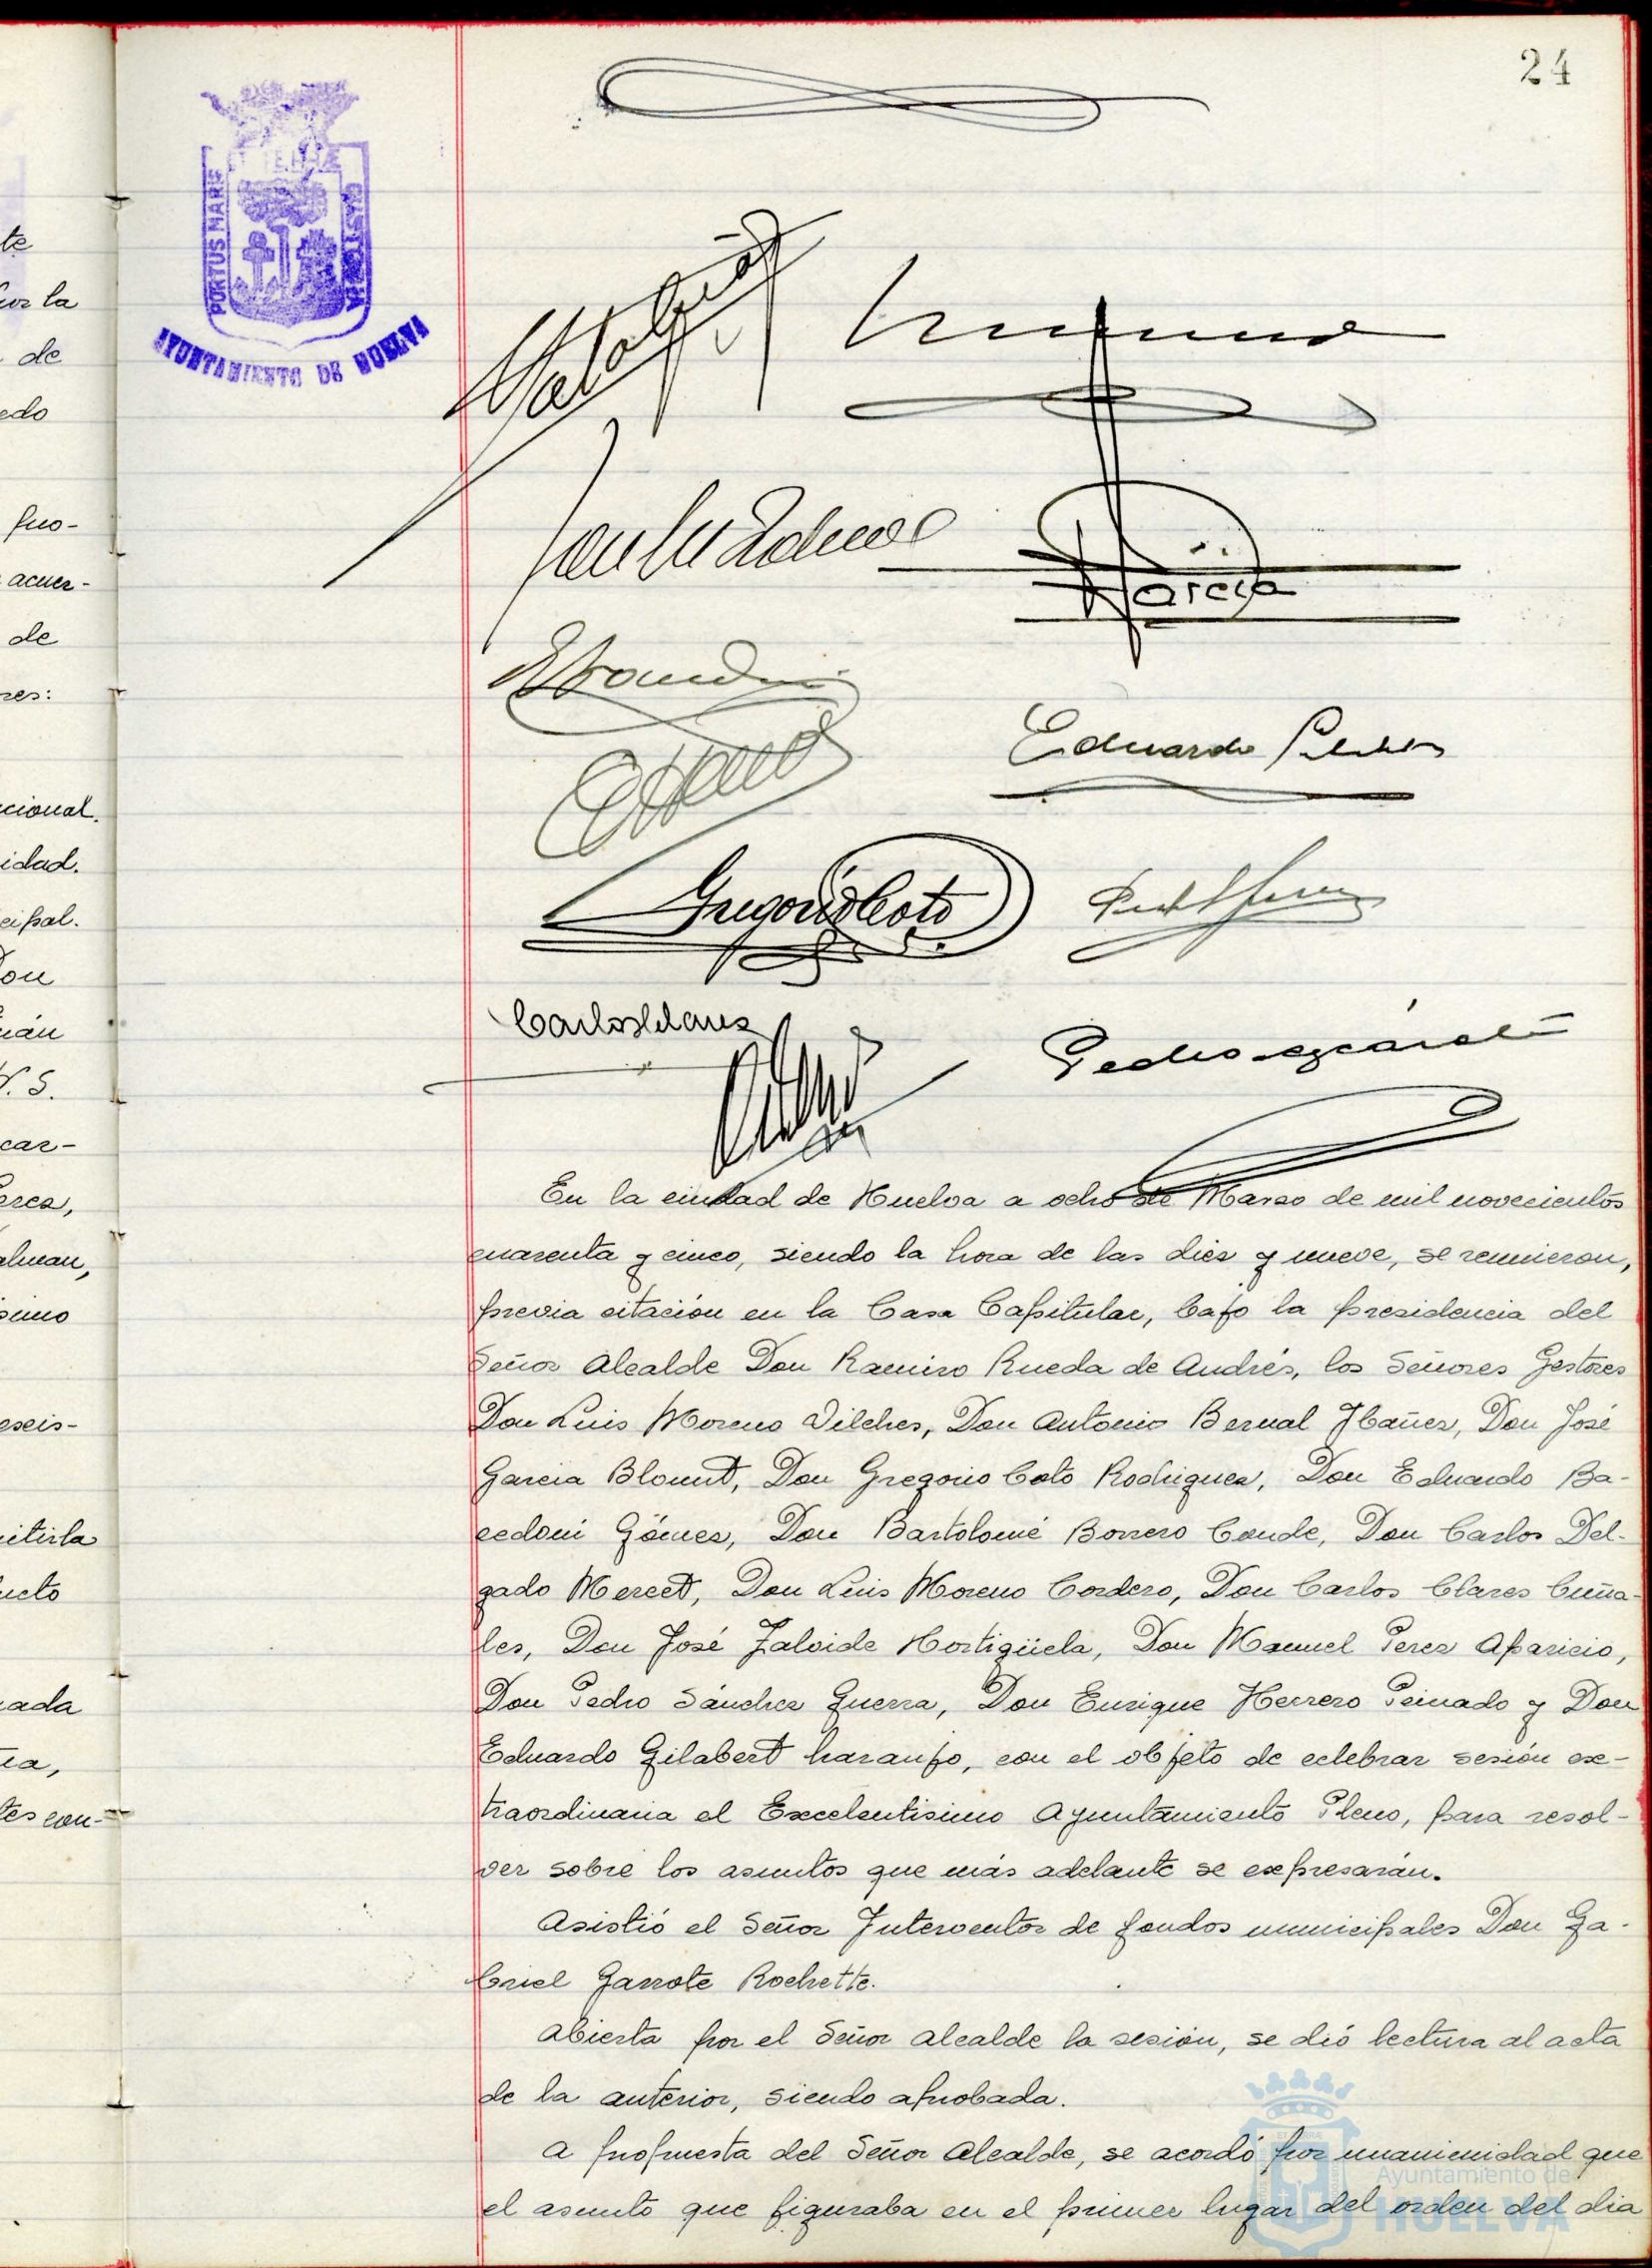 24
PORTUS MARIS
AYUNTAMIENTO DE HUELVA
García
Eduardo
Gregorio Coto
Carlos Clares
Pedro
En la ciudad de Huelva a ocho de Marzo de mil novecientos
cuarenta y cinco, siendo la hora de las diez y nueve, se reunieron,
previa citación en la Casa Capitular, bajo la presidencia del
Señor Alcalde Don Ramiro Rueda de Andrés, los Señores Gestores
Don Luis Moreno Vilches, Don Antonio Bernal Ibañez, Don José
Garcia Blount, Don Gregorio Coto Rodriguez, Don Eduardo Ba-
cedoni Gómez, Don Bartolomé Borrero Conde, Don Carlos Del-
gado Mercet, Don Luis Moreno Cordero, Don Carlos Clares Cuña-
les, Don José Zalvide Hortigüela, Don Manuel Perez Aparicio,
Don Pedro Sánchez Guerra, Don Enrique Herrero Peinado y Don
Eduardo Gilabert Naranjo, con el objeto de celebrar sesión ex-
traordinaria el Excelentisimo Ayuntamiento Pleno, para resol-
ver sobre los asuntos que más adelante se expresarán.
Asistió el Señor Interventor de fondos municipales Don Ga-
briel Garrote Rochette.
Abierta por el Señor Alcalde la sesión, se dió lectura al acta
de la anterior, siendo aprobada.
A propuesta del Señor Alcalde, se acordó por unanimidad que
el asunto que figuraba en el primer lugar del orden del dia
Ayuntamiento de
HUELVA